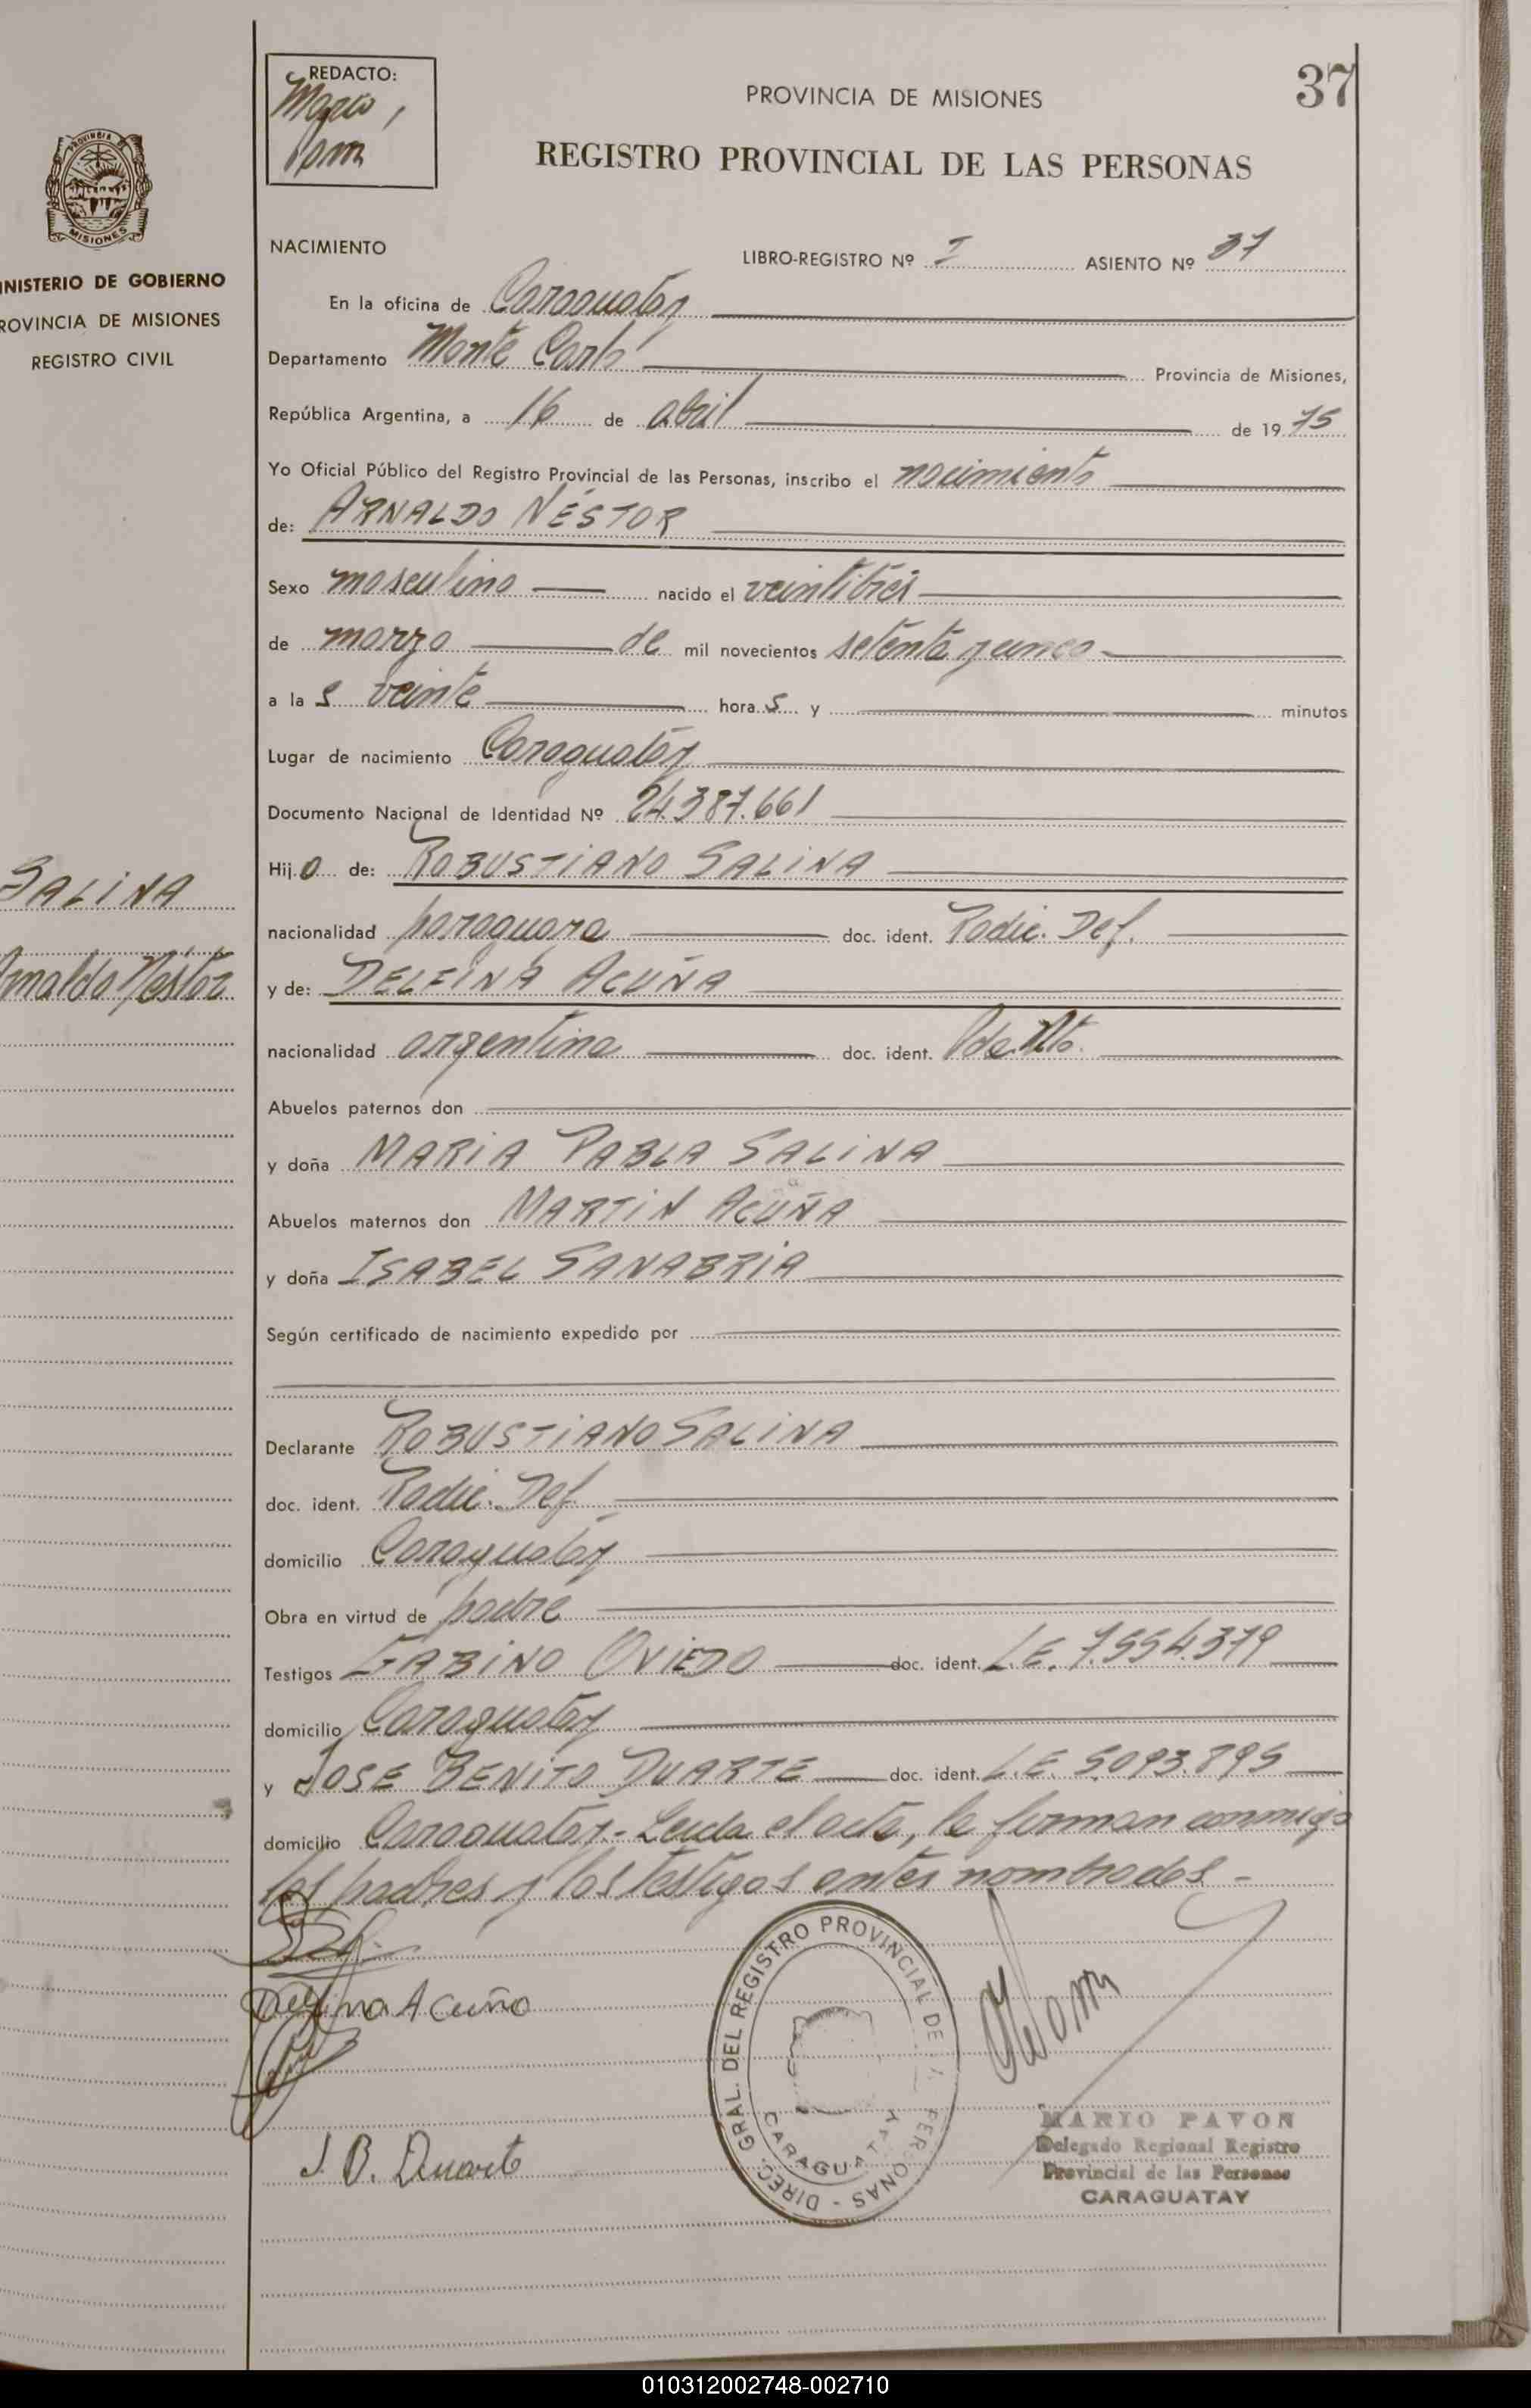 REDACTO:
Mario
Pavon
PROVINCIA DE MISIONES
37
REGISTRO PROVINCIAL DE LAS PERSONAS
MISIONES
NISTERIO DE GOBIERNO
ROVINCIA DE MISIONES
REGISTRO CIVIL
NACIMIENTO LIBRO-REGISTRO Nº I ASIENTO Nº 37
En la oficina de Caraguatay
Departamento Monte Carlo Provincia de Misiones,
República Argentina, a 16 de abril de 1975
Yo Oficial Público del Registro Provincial de las Personas, inscribo el nacimiento
de: ARNALDO NÉSTOR
Sexo masculino nacido el veintitrés
de marzo de mil novecientos setenta y cinco
a las veinte horas y minutos
Lugar de nacimiento Caraguatay
Documento Nacional de Identidad Nº 24.387.661
Hijo de: ROBUSTIANO SALINA
SALINA
nacionalidad paraguaya doc. ident. Radic. Def.
Arnaldo Néstor
y de: DELFINA ACUÑA
nacionalidad argentina doc. ident.
Abuelos paternos don
y doña MARIA PABLA SALINA
Abuelos maternos don MARTIN ACUÑA
y doña ISABEL SANABRIA
Según certificado de nacimiento expedido por
Declarante ROBUSTIANO SALINA
doc. ident. Radic. Def.
domicilio Caraguatay
Obra en virtud de padre
Testigos GABINO OVIEDO doc. ident. L.E. 7.554.379
domicilio Caraguatay
y JOSE BENITO DUARTE doc. ident. L.E. 5.093.895
domicilio Caraguatay.- Leida el acta, la firman conmigo
los padres y los testigos antes nombrados -
Delfina Acuña
J. B. Duarte
DIREC. GRAL. DEL REGISTRO PROVINCIAL DE PERSONAS -
CARAGUATAY
MARIO PAVON
Delegado Regional Registro
Provincial de las Personas
CARAGUATAY
010312002748-002710